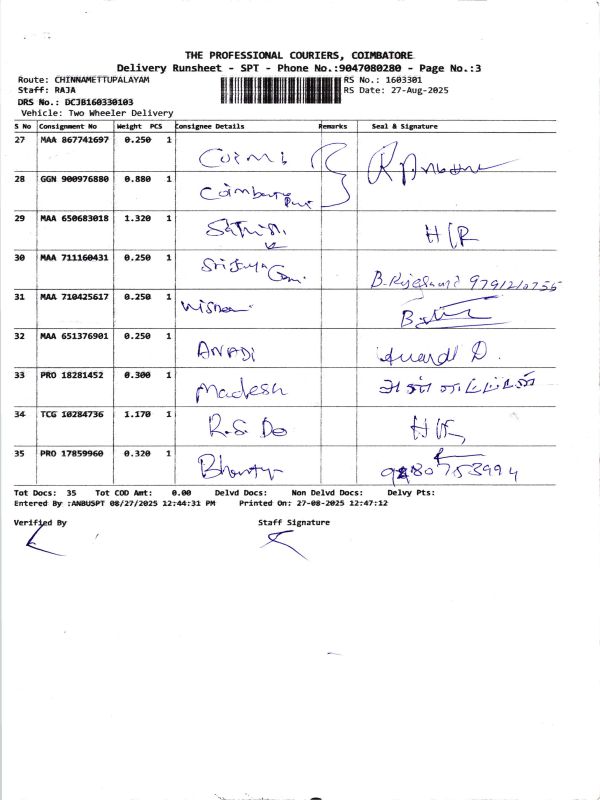 THE PROFESSIONAL COURIERS, COIMBATORE
Delivery Runsheet - SPT - Phone No.:9047080280 - Page No.:3
Route: CHINNAMETTUPALAYAM RS No.: 1603301
Staff: RAJA RS Date: 27-Aug-2025
DRS No.: DCJB160330103
Vehicle: Two Wheeler Delivery
S No Consignment No Weight PCS Consignee Details Remarks Seal & Signature
27 MAA 867741697 0.250 1
28 GGN 900976880 0.880 1
29 MAA 650683018 1.320 1 H/R
30 MAA 711160431 0.250 1
31 MAA 710425617 0.250 1
32 MAA 651376901 0.250 1 ANADI
33 PRO 18281452 0.300 1 Madesh
34 TCG 10284736 1.170 1 R.S. Do H/R
35 PRO 17859960 0.320 1
Tot Docs: 35 Tot COD Amt: 0.00 Delvd Docs: Non Delvd Docs: Delvy Pts:
Entered By :ANBUSPT 08/27/2025 12:44:31 PM Printed On: 27-08-2025 12:47:12
Verified By Staff Signature